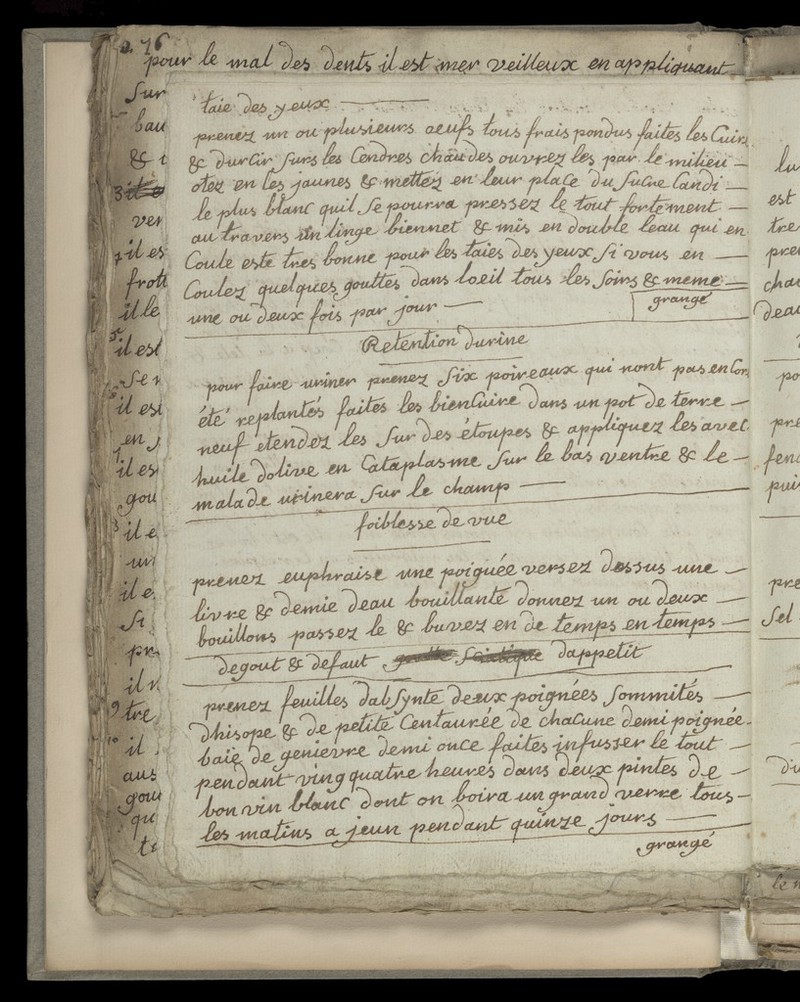 76
pour le mal des dents il est mer veilleux en appliquant
taie des yeux
prenez un ou plusieurs oeufs tous frais pondus faites les Cuire
& durcir surs les Cendres chaudes ouvrez les par le milieu
otez en les jaunes & mettez en leur place du sucre Candi
le plus blanc quil se pourra pressez le tout fortement
au travers un linge bien net & mis en double leau qui en
Coule este tres bonne pour les taies des yeux si vous en
Coulez quelques gouttes dans loeil tous les soirs & meme
une ou deux fois par jour
grangé
Retention durine
pour faire uriner prenez six poireaux qui nont pas encor
été replantés faites les bien Cuire dans un pot de terre
neuf etendez les sur des étoupes & appliquez les avec
huile dolive en Cataplasme sur le bas ventre & le
malade urinera sur le champ
foiblesse de vue
prenez euphraise une poiguée versez dessus une
livre & demie deau bouillante donnez un ou deux
bouillons passez le & buvez en de temps en temps
degout & defaut dappetit
prenez feuilles dabsynte deux poignées sommités
dhisope & de petite Centaurée de chacune demi poignée
baie de genievre demi once faites infusser le tout
pendant ving quatre heures dans deux pintes de
bon vin blanc dont on boira un grand verre tous
les matins a jeun pendant quinze jours
grangé